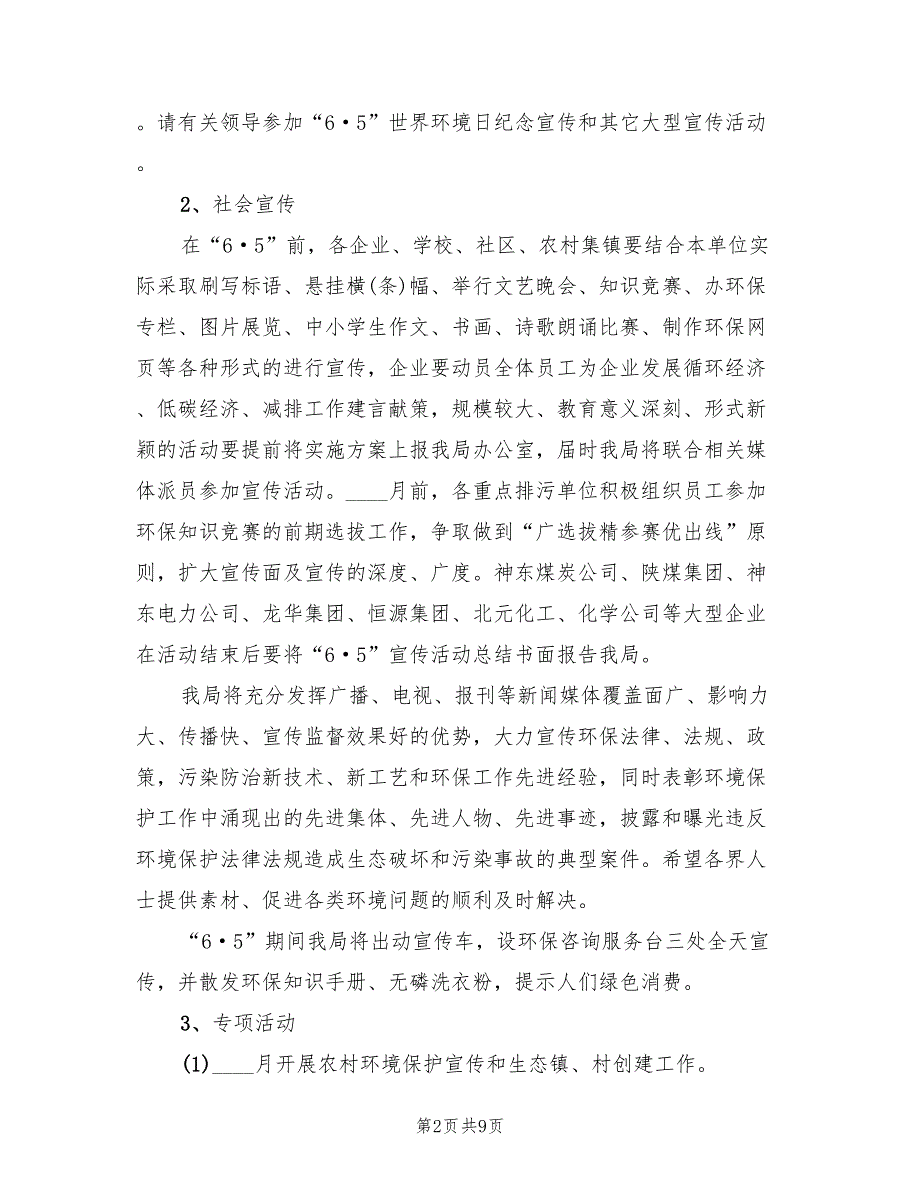 。请有关领导参加“6·5”世界环境日纪念宣传和其它大型宣传活动
。
2、社会宣传
在“6·5”前，各企业、学校、社区、农村集镇要结合本单位实
际采取刷写标语、悬挂横(条)幅、举行文艺晚会、知识竞赛、办环保
专栏、图片展览、中小学生作文、书画、诗歌朗诵比赛、制作环保网
页等各种形式的进行宣传，企业要动员全体员工为企业发展循环经济
、低碳经济、减排工作建言献策，规模较大、教育意义深刻、形式新
颖的活动要提前将实施方案上报我局办公室，届时我局将联合相关媒
体派员参加宣传活动。____月前，各重点排污单位积极组织员工参加
环保知识竞赛的前期选拔工作，争取做到“广选拔精参赛优出线”原
则，扩大宣传面及宣传的深度、广度。神东煤炭公司、陕煤集团、神
东电力公司、龙华集团、恒源集团、北元化工、化学公司等大型企业
在活动结束后要将“6·5”宣传活动总结书面报告我局。
我局将充分发挥广播、电视、报刊等新闻媒体覆盖面广、影响力
大、传播快、宣传监督效果好的优势，大力宣传环保法律、法规、政
策，污染防治新技术、新工艺和环保工作先进经验，同时表彰环境保
护工作中涌现出的先进集体、先进人物、先进事迹，披露和曝光违反
环境保护法律法规造成生态破坏和污染事故的典型案件。希望各界人
士提供素材、促进各类环境问题的顺利及时解决。
“6·5”期间我局将出动宣传车，设环保咨询服务台三处全天宣
传，并散发环保知识手册、无磷洗衣粉，提示人们绿色消费。
3、专项活动
(1)____月开展农村环境保护宣传和生态镇、村创建工作。
第2页共9页